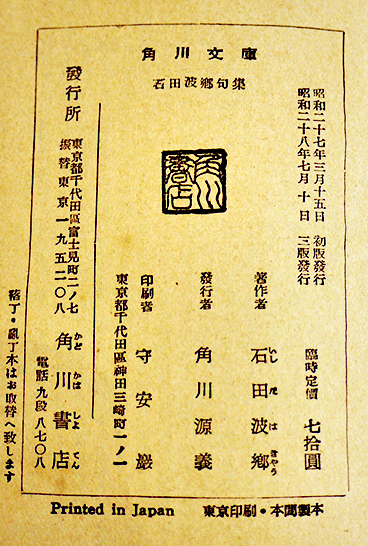 角川文庫
石田波郷句集
昭和二十七年三月十五日 初版發行
昭和二十八年七月十日 三版發行
臨時定價 七拾圓
著作者 石田波郷
いし だ は きやう
發行者 角川源義
印刷者 守安巖
東京都千代田區神田三崎町一ノ一
發行所
東京都千代田區富士見町二ノ七
振替東京一九五二〇八
角川書店
かど かは しよ てん
電話九段八七〇八
落丁・亂丁本はお取替へ致します
Printed in Japan 東京印刷・本間製本